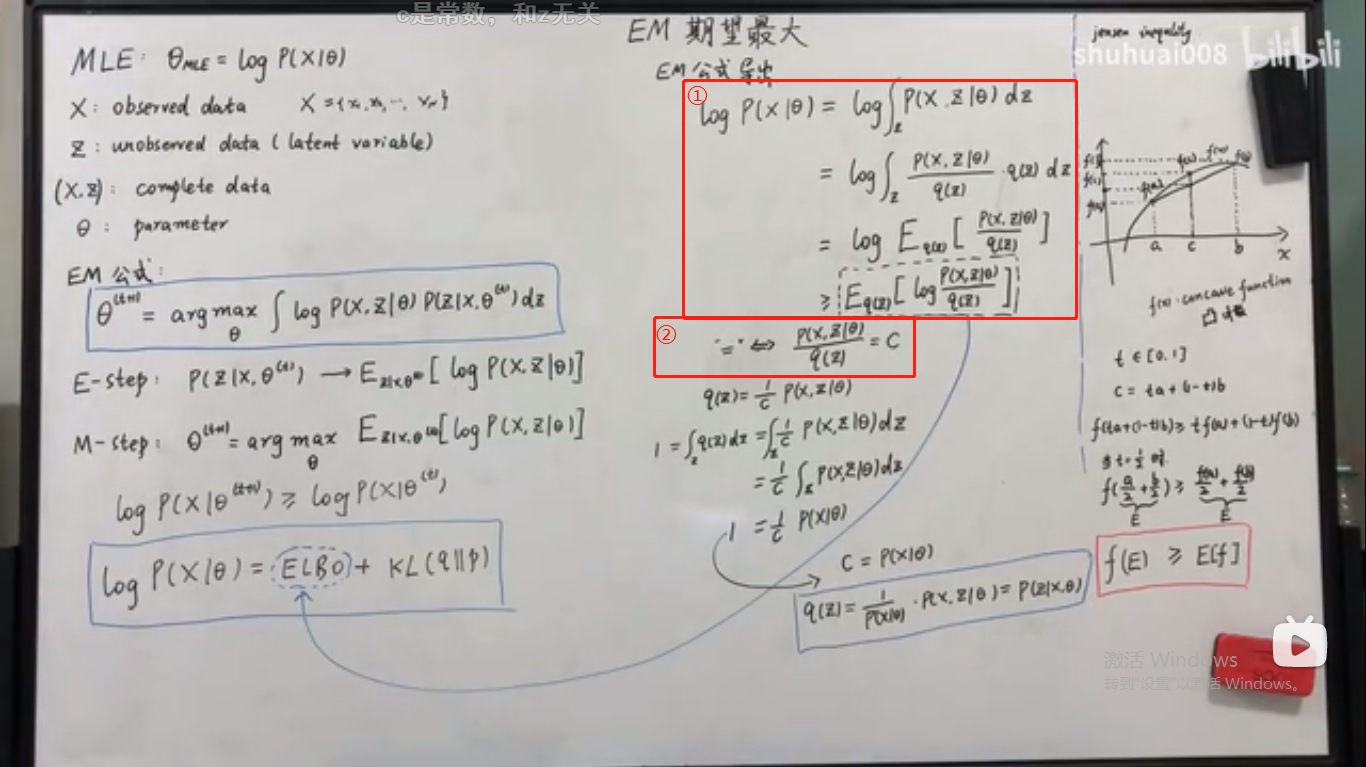 c是常数，和z无关
MLE: θ_MLE = log P(X|θ)
X: observed data X = {x₁, x₂, ⋯, x_N}
Z: unobserved data (latent variable)
(X, Z): complete data
θ: parameter
EM 公式:
θ^(t+1) = arg max_θ ∫ log P(X, Z|θ) P(Z|X, θ^(t)) dz
E-step: P(Z|X, θ^(t)) → E_{Z|X,θ^(t)} [log P(X, Z|θ)]
M-step: θ^(t+1) = arg max_θ E_{Z|X,θ^(t)} [log P(X, Z|θ)]
log P(X|θ^(t+1)) ≥ log P(X|θ^(t))
log P(X|θ) = ELBO + KL(q||p)
EM 期望最大
EM 公式导出
①
log P(X|θ) = log ∫_Z P(X, Z|θ) dz
= log ∫_Z P(X, Z|θ)/q(Z) · q(Z) dz
= log E_{q(Z)} [P(X, Z|θ)/q(Z)]
≥ E_{q(Z)} [log P(X, Z|θ)/q(Z)]
②
"=" ⇔ P(X, Z|θ)/q(Z) = C
q(Z) = 1/C P(X, Z|θ)
1 = ∫_Z q(Z) dz = ∫_Z 1/C P(X, Z|θ) dz
= 1/C ∫_Z P(X, Z|θ) dz
1 = 1/C P(X|θ)
C = P(X|θ)
q(Z) = 1/P(X|θ) · P(X, Z|θ) = P(Z|X, θ)
jensen inequality
shuhuai008 bilibili
f(b)
f(c)
f(a)
f(a)
f(c)
f(x)
f(b)
a c b
x
f(x) concave function
凸 函数
t ∈ [0, 1]
c = ta + (1-t)b
f(ta+(1-t)b) ≥ tf(a) + (1-t)f(b)
当 t = 1/2 时
f(a/2 + b/2) ≥ f(a)/2 + f(b)/2
E E
f(E) ≥ E[f]
激活 Windows
转到"设置"以激活 Windows。